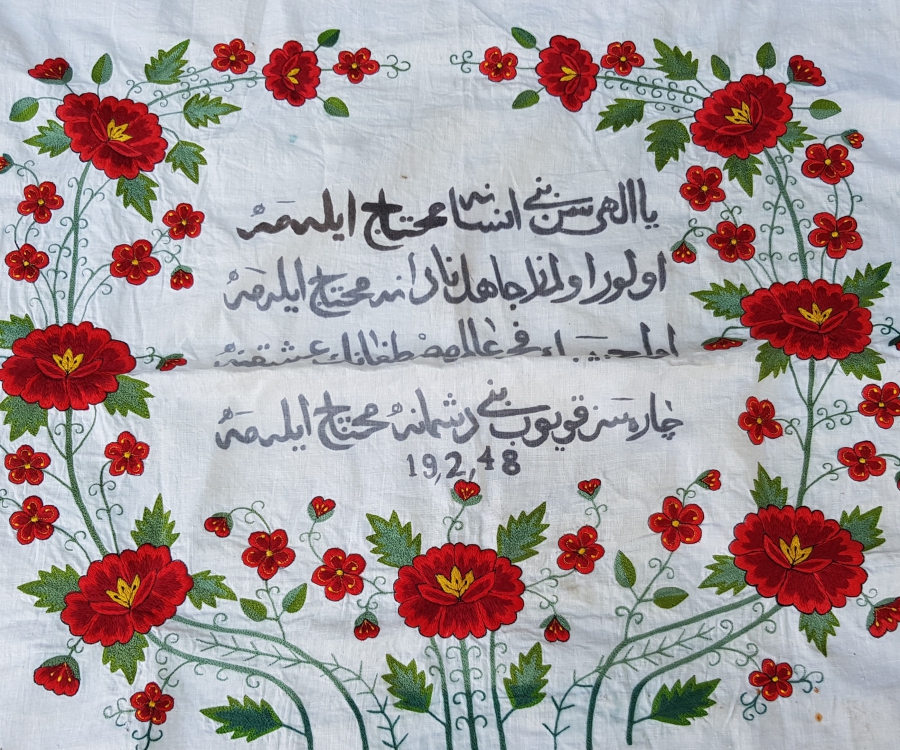 يا الهى سن بنى انسانه محتاج ايلمه
اولور اولماز جاهل نادانه محتاج ايلمه
عالم مصطفانك عشقنه
چاره سز قويوب بنى دشمانه محتاج ايلمه
19,2,48